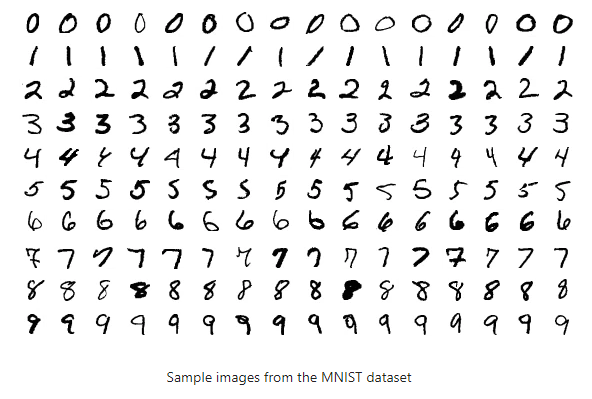 0 0 0 0 0 0 0 0 0 0 0 0 0 0 0 0
1 1 1 1 1 1 1 1 1 1 1 1 1 1 1 1
2 2 2 2 2 2 2 2 2 2 2 2 2 2 2 2
3 3 3 3 3 3 3 3 3 3 3 3 3 3 3 3
4 4 4 4 4 4 4 4 4 4 4 4 4 4 4 4
5 5 5 5 5 5 5 5 5 5 5 5 5 5 5 5
6 6 6 6 6 6 6 6 6 6 6 6 6 6 6 6
7 7 7 7 7 7 7 7 7 7 7 7 7 7 7 7
8 8 8 8 8 8 8 8 8 8 8 8 8 8 8 8
9 9 9 9 9 9 9 9 9 9 9 9 9 9 9 9
Sample images from the MNIST dataset